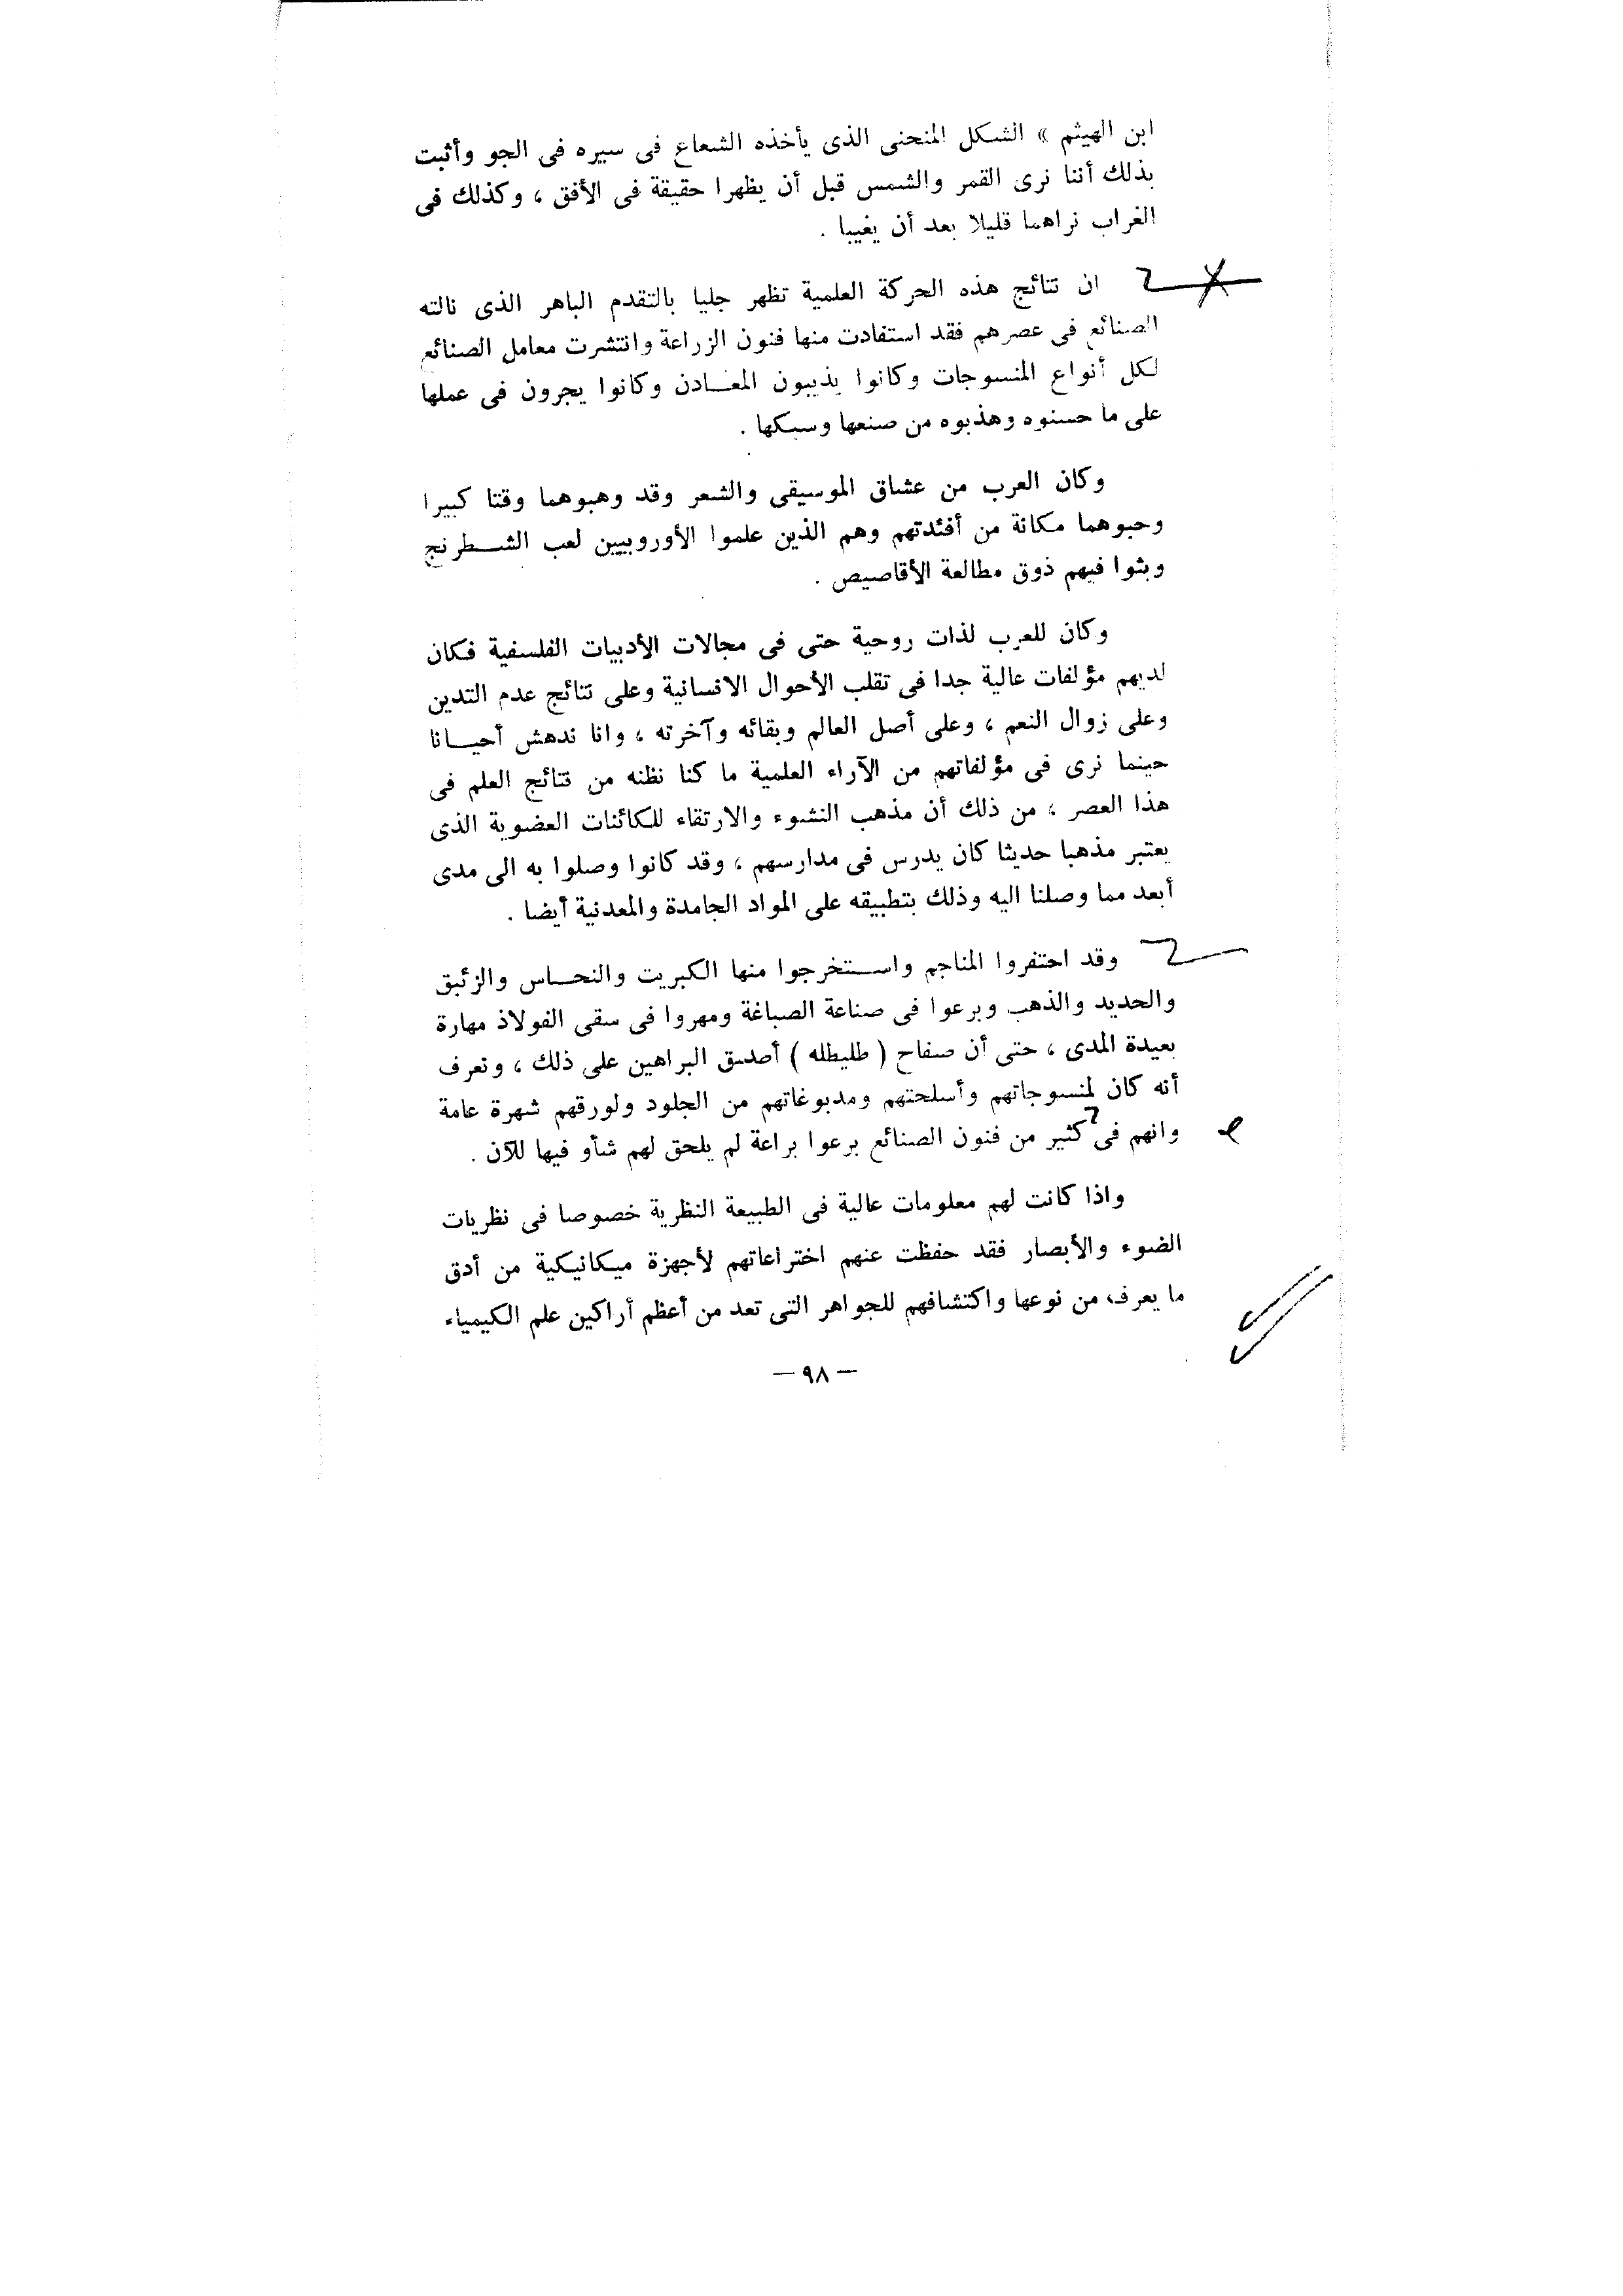 ابن الهيثم » الشكل المنحنى الذى يأخذه الشعاع فى سيره فى الجو وأثبت
بذلك أننا نرى القمر والشمس قبل أن يظهرا حقيقة فى الأفق ، وكذلك فى
الغراب نراهما قليلا بعد أن يغيبا .
ان نتائج هذه الحركة العلمية تظهر جليا بالتقدم الباهر الذى نالته
الصنائع فى عصرهم فقد استفادت منها فنون الزراعة وانتشرت معامل الصنائع
لكل أنواع المنسوجات وكانوا يذيبون المعادن وكانوا يجرون فى عملها
على ما حسنوه وهذبوه من صنعها وسبكها .
وكان العرب من عشاق الموسيقى والشعر وقد وهبوهما وقتا كبيرا
وحبوهما مكانة من أفئدتهم وهم الذين علموا الأوروبيين لعب الشطرنج
وبثوا فيهم ذوق مطالعة الأقاصيص .
وكان للعرب لذات روحية حتى فى مجالات الأدبيات الفلسفية فكان
لديهم مؤلفات عالية جدا فى تقلب الأحوال الانسانية وعلى نتائج عدم التدين
وعلى زوال النعم ، وعلى أصل العالم وبقائه وآخرته ، وانا ندهش أحيانا
حينما نرى فى مؤلفاتهم من الآراء العلمية ما كنا نظنه من نتائج العلم فى
هذا العصر ؛ من ذلك أن مذهب النشوء والارتقاء للكائنات العضوية الذى
يعتبر مذهبا حديثا كان يدرس فى مدارسهم ، وقد كانوا وصلوا به الى مدى
أبعد مما وصلنا اليه وذلك بتطبيقه على المواد الجامدة والمعدنية أيضا .
وقد احتفروا المناجم واستخرجوا منها الكبريت والنحاس والزئبق
والحديد والذهب وبرعوا فى صناعة الصباغة ومهروا فى سقى الفولاذ مهارة
بعيدة المدى ، حتى أن صفاح ( طليطله ) أصدق البراهين على ذلك ، ونعرف
أنه كان لمنسوجاتهم وأسلحتهم ومدبوغاتهم من الجلود ولورقهم شهرة عامة
وانهم فى كثير من فنون الصنائع برعوا براعة لم يلحق لهم شأو فيها للآن .
واذا كانت لهم معلومات عالية فى الطبيعة النظرية خصوصا فى نظريات
الضوء والأبصار فقد حفظت عنهم اختراعاتهم لأجهزة ميكانيكية من أدق
ما يعرف من نوعها واكتشافهم للجواهر التى تعد من أعظم أراكين علم الكيمياء
— ٩٨ —